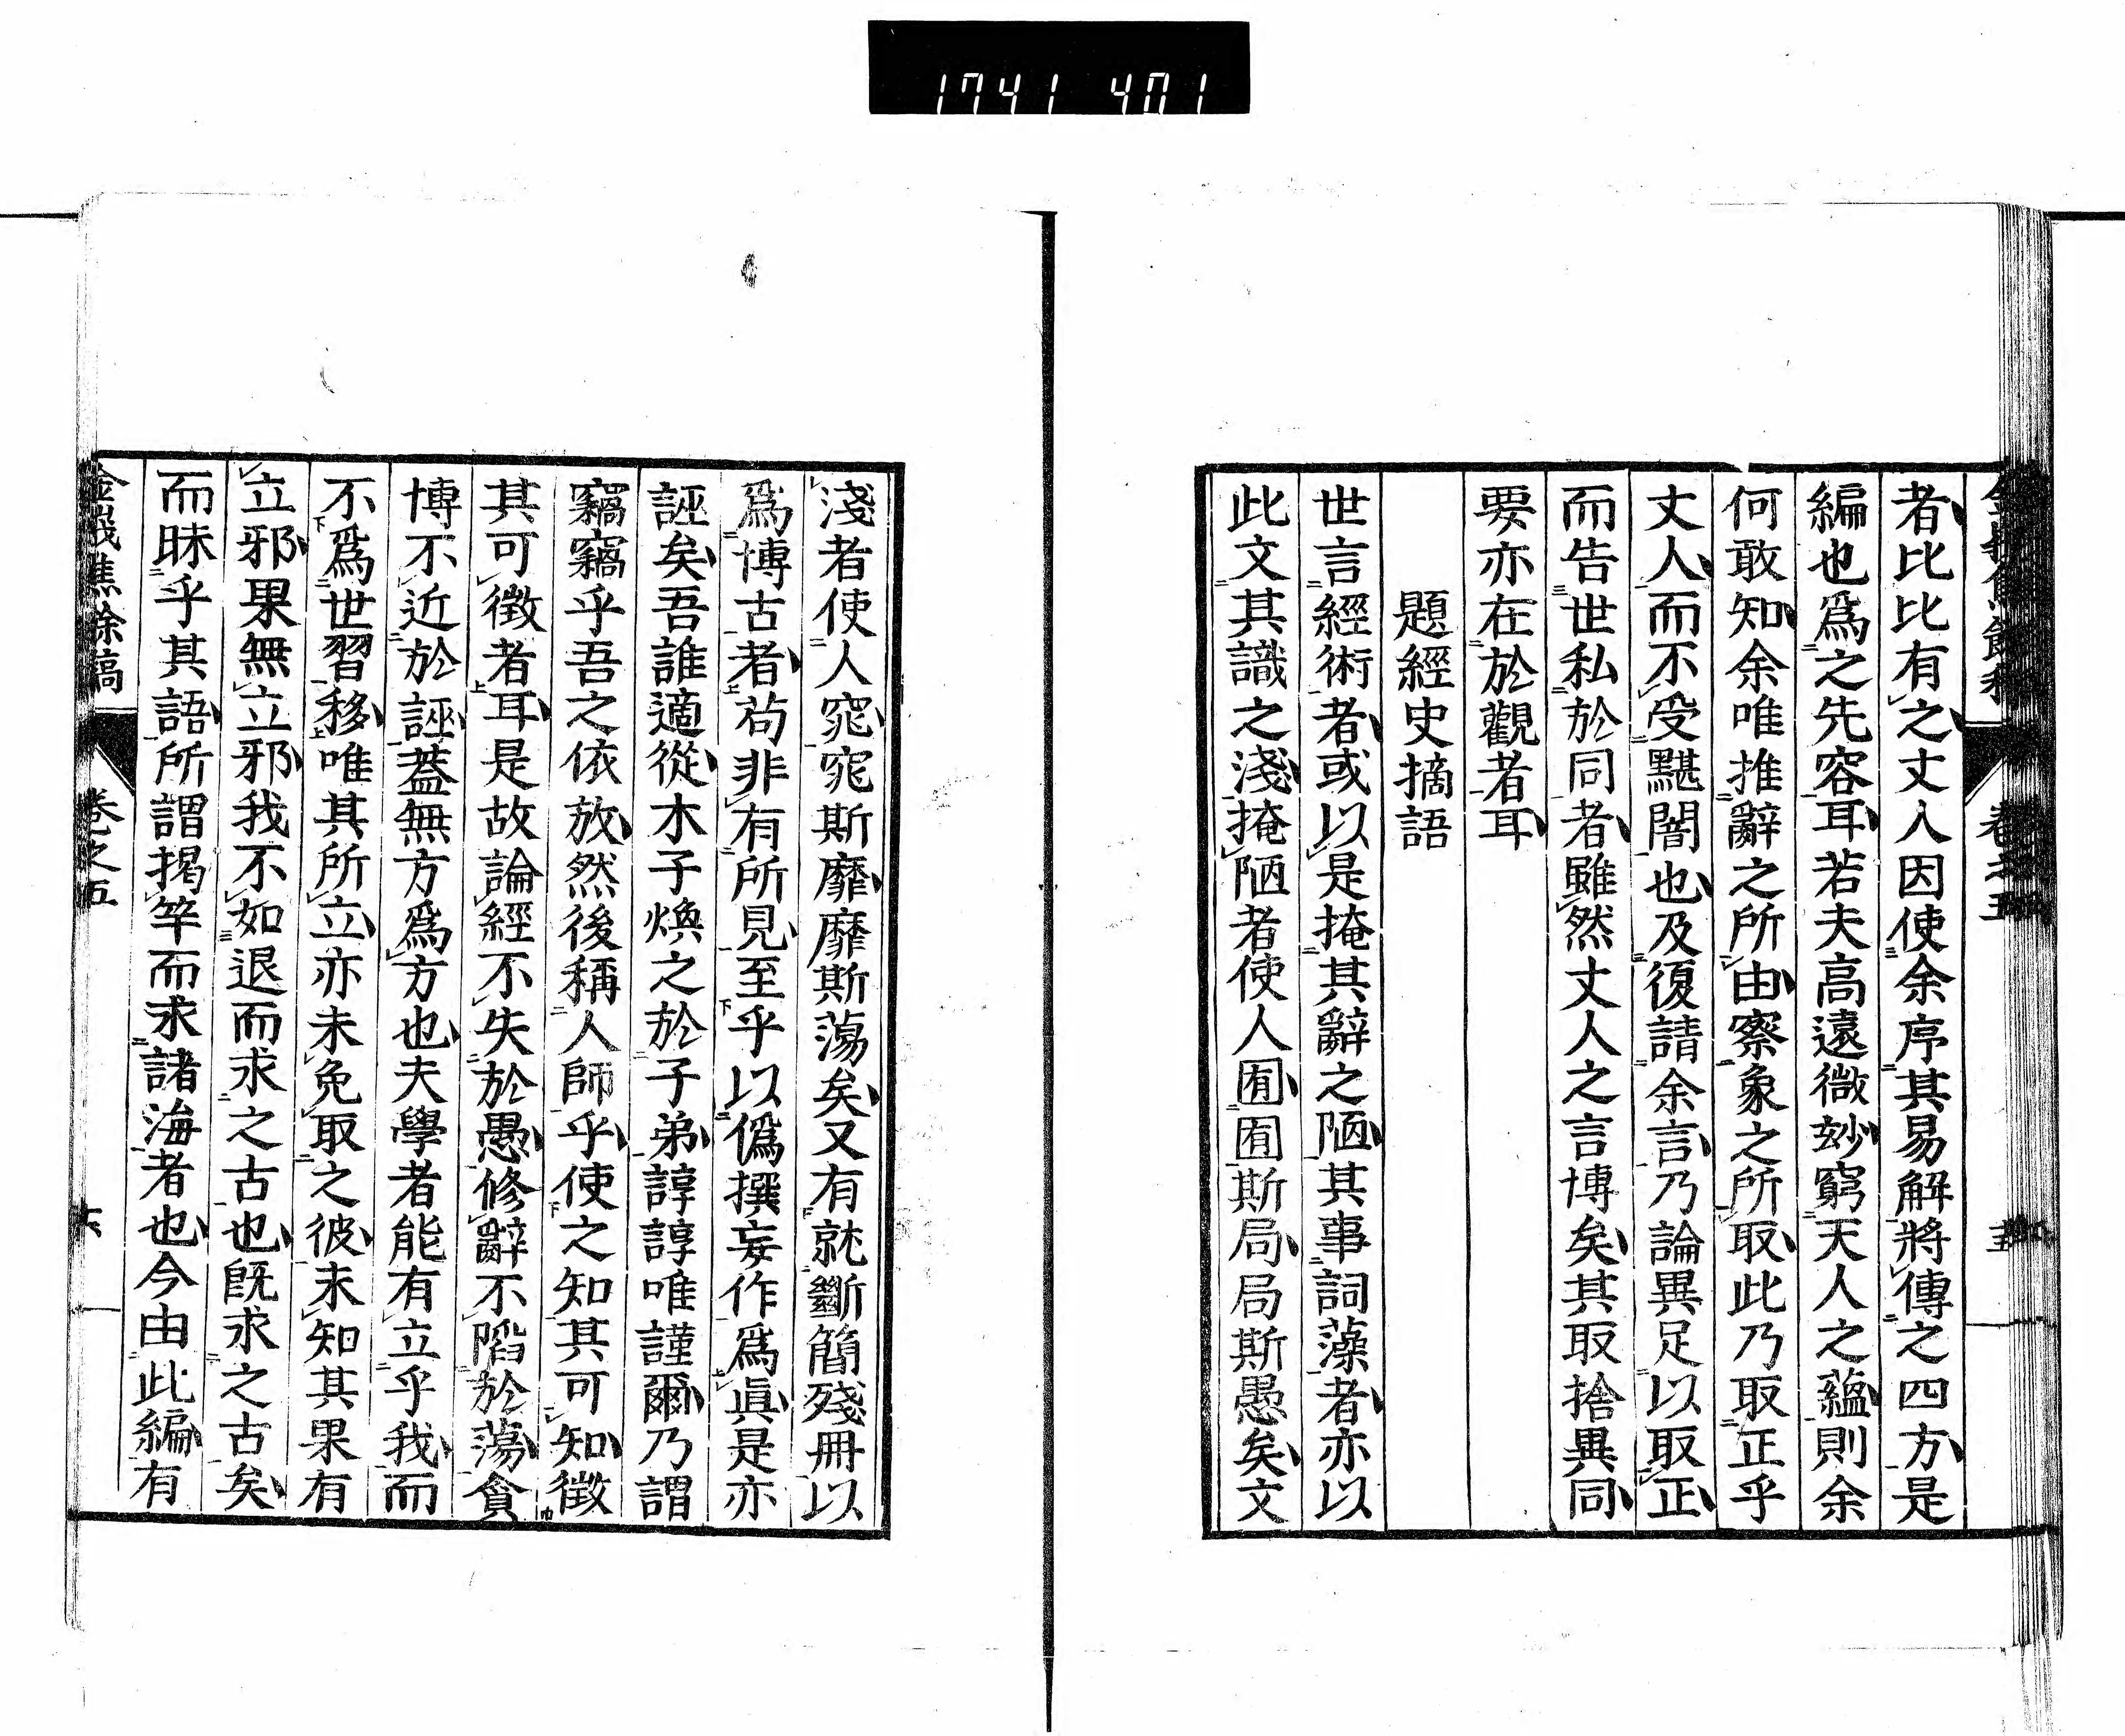 1741 401
者比比有之丈人因使余序其易解將傳之四方是
編也爲之先容耳若夫高遠微玅窮天人之蘊則余
何敢知余唯推辭之所由察象之所取此乃取正乎
丈人而不受黮闇也及復請余言乃論異足以取正
而告世私於同者雖然丈人之言博矣其取捨異同
要亦在於觀者耳
題經史摘語
世言經術者或以是掩其辭之陋其事詞藻者亦以
此文其識之淺掩陋者使人囿囿斯局局斯愚矣文
淺者使人窕窕斯靡靡斯蕩矣又有就斷簡殘冊以
爲博古者苟非有所見至乎以僞撰妄作爲眞是亦
誣矣吾誰適從木子煥之於子弟諄諄唯謹爾乃謂
竊竊乎吾之依放然後稱人師乎使之知其可知徵
其可徵者耳是故論經不失於愚修辭不陷於蕩貪
博不近於誣蓋無方爲方也夫學者能有立乎我而
不爲世習移唯其所立亦未免取之彼未知其果有
立邪果無立邪我不如退而求之古也既求之古矣
而昧乎其語所謂揭竿而求諸海者也今由此編有
金峩焦餘稿
卷之五
六